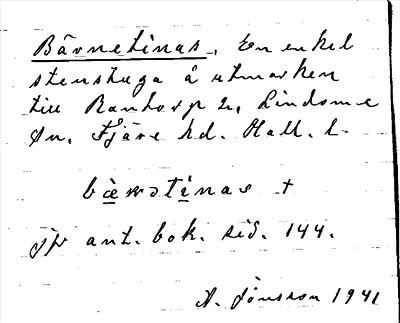 Bärnetinas, En enkel
stenstuga å utmarken
till Rantorp 2, Lindome
sn. Fjäre hd. Hall. l.
bæ̀rnətinas +
jfr ant. bok. sid. 144.
A. Jönsson 1941